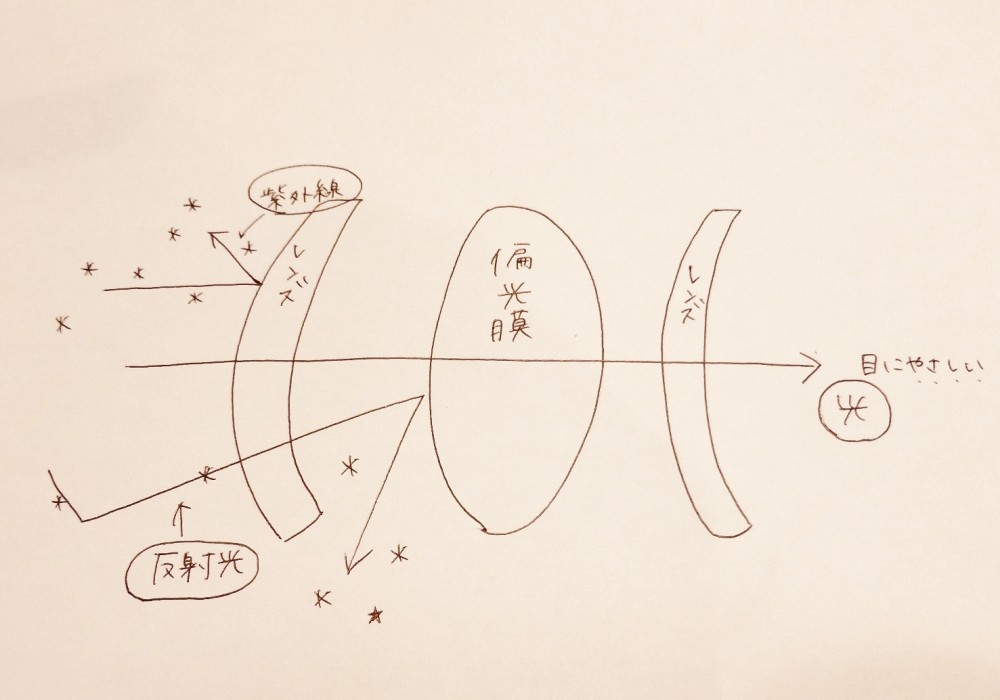 紫外線
レンズ
偏光膜
レンズ
目にやさしい
光
反射光